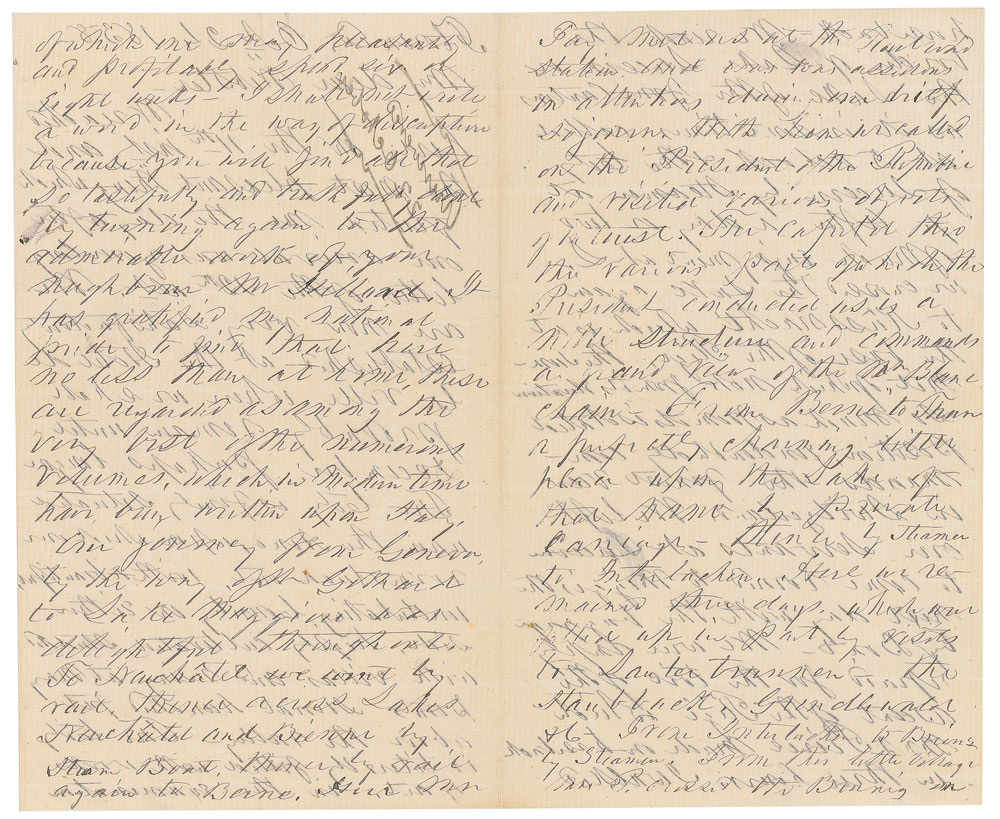 of which one may pleasantly
and profitably spend six or
Eight weeks – I shall not write
a word in the way of discription
because you will find all that
so tastefully and truthfully done
by turning again to the
admirable work of your
neighbour Mr Hillard. It
has gratified my national
pride to find that here
no less than at home, these
are regarded as among the
very best of the numerous
volumes, which in modern time
have been written upon Italy.
Our journey from Geneva,
by the way of St Gothard
to Lake Maggiore was
delightful throughout.
To Neuchatel we went by
rail. Thence across Lakes
Neuchatel and Bienne by
Steam Boat, thence by rail
again to Berne. Here Mr
Fay met us at the Rail road
station and was assiduous
in attentions during our brief
sojourn. With him we called
on the President of the Republic
and visited various objects
of interest. The Capitol thro'
the various parts of which the
President conducted us is a
noble structure and commands
a grand view of the Mt Blanc
chain. From Berne to Thun
a perfectly charming little
place upon the Lake of
that name by private
Carriage – thence by Steamer
to Interlachen. Here we re-
mained three days, which were
filled up in part by visits
to Lauterbrunnen, the
Staubback, Grindelwald
&c. From Interlachen to Brienz
by Steamer. From this little village
we crossed the Brunig in